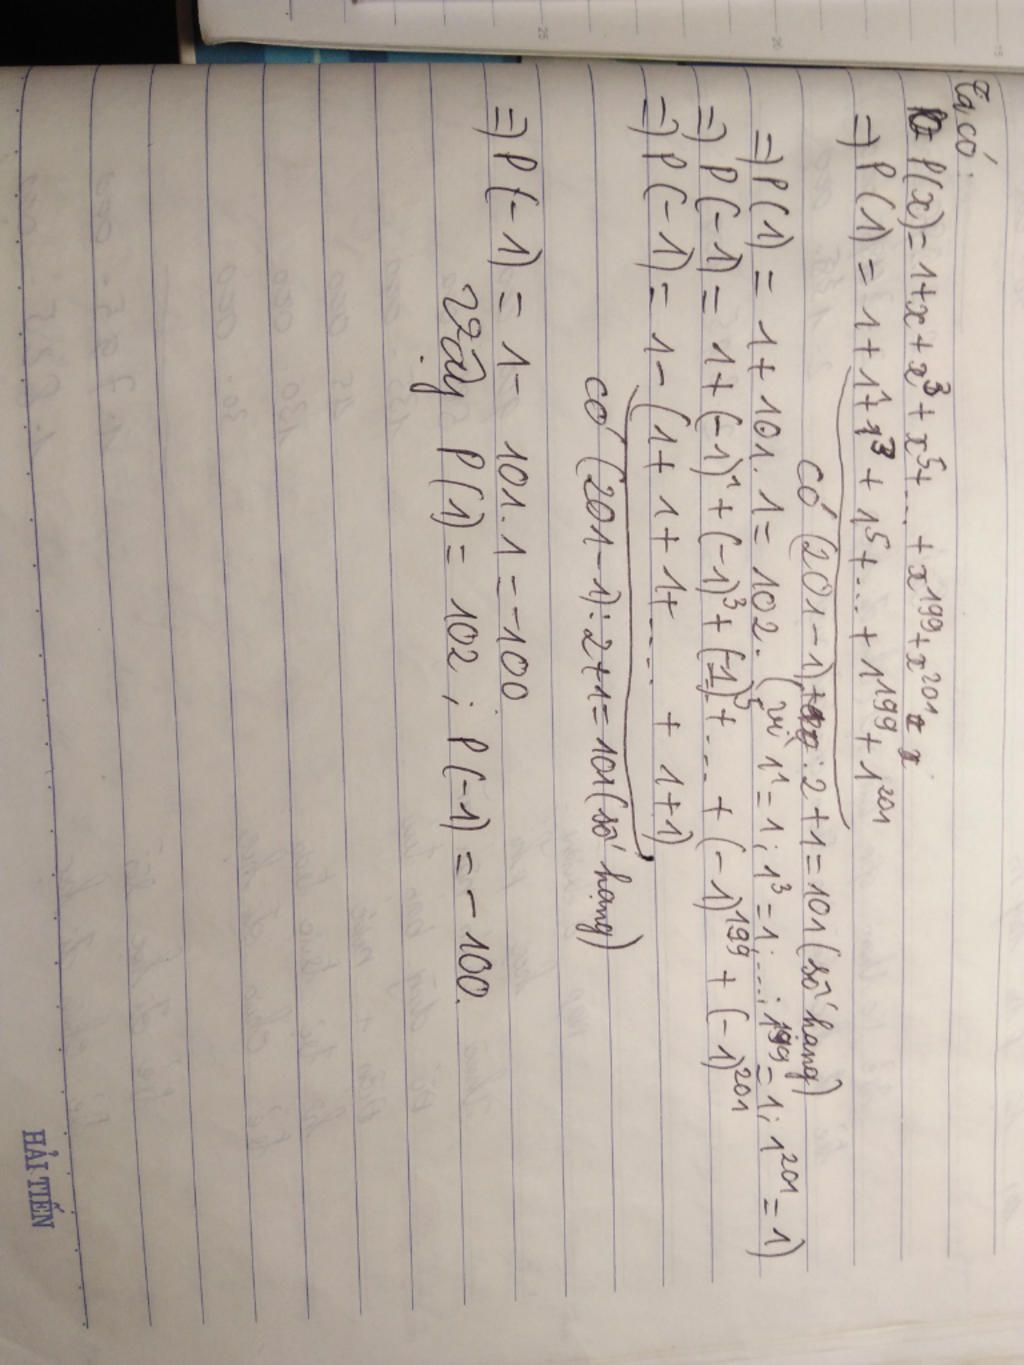 Ta có:
P(x) = 1+x+x³+x⁵+...+x¹⁹⁹+x²⁰¹
=) P(1) = 1+1¹+1³+1⁵+...+1¹⁹⁹+1²⁰¹
có (201-1):2+1=101 (số hạng)
=) P(1) = 1+101.1=102. (vì 1¹=1; 1³=1;...; 1¹⁹⁹=1; 1²⁰¹=1)
=) P(-1) = 1+(-1)¹+(-1)³+(-1)⁵+...+(-1)¹⁹⁹+(-1)²⁰¹
=) P(-1) = 1-(1+1+1+....+1+1)
có (201-1):2+1=101 (số hạng)
=) P(-1) = 1-101.1=-100
Vậy P(1)=102; P(-1)=-100.
HẢI TIẾN
25
20
15